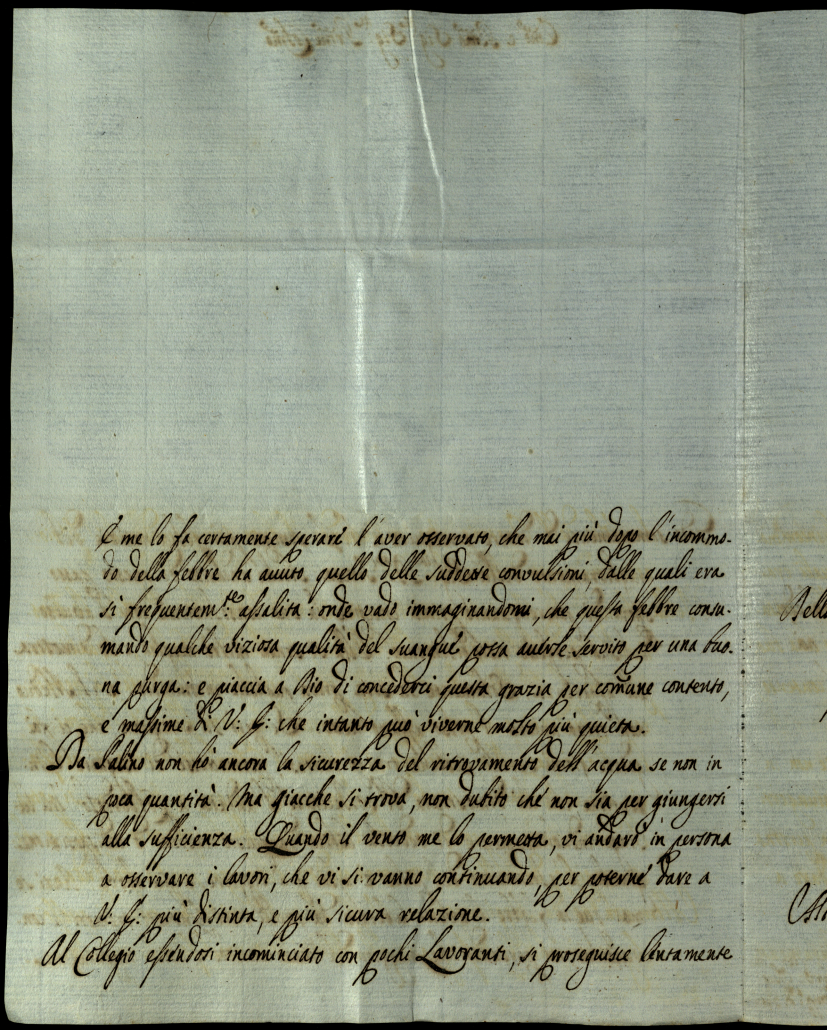 E me lo fa certamente sperare l'aver osservato, che mai più dopo l'incommo-
do della febbre ha avuto quello delle suddette convulsioni, dalle quali era
sì frequentem.te assalita: onde vado immaginandomi, che questa febbre consu-
mando qualche viziosa qualità del suangue possa averle servito per una buo-
na purga: e piaccia a Dio di concederci questa grazia per com̃une contento,
e massime di V: E: che intanto può viverne molto più quieta.
Da Salino non hò ancora la sicurezza del ritrovamento dell'acqua se non in
poca quantità. Ma giacche si trova, non dubito che non sia per giungersi
alla sufficienza. Quando il vento me lo permetta, vi andarò in persona
a osservare i lavori, che vi si vanno continuando, per poterne dare a
V: E: più distinta, e più sicura relazione.
Al Collegio essendosi incominciato con pochi Lavoranti, si proseguisce lentamente